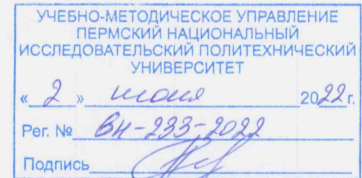 УЧЕБНО-МЕТОДИЧЕСКОЕ УПРАВЛЕНИЕ
ПЕРМСКИЙ НАЦИОНАЛЬНЫЙ
ИССЛЕДОВАТЕЛЬСКИЙ ПОЛИТЕХНИЧЕСКИЙ
УНИВЕРСИТЕТ
« 2 » июня 2022 г.
Рег. № ВН-233-2022
Подпись